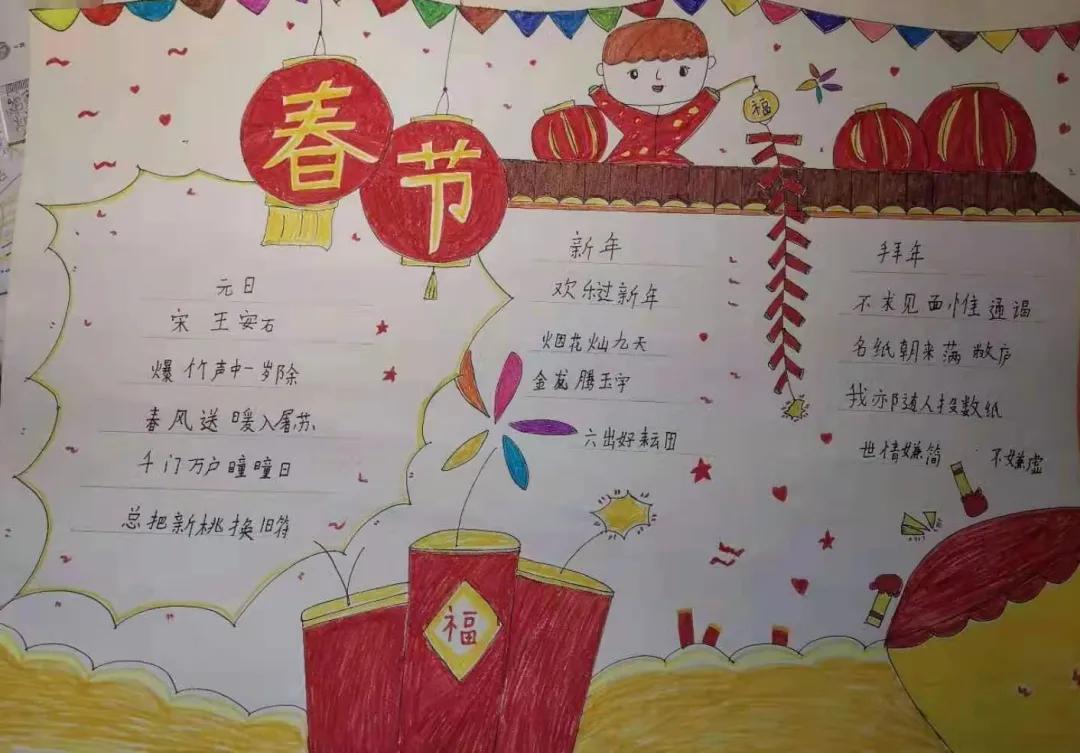 春节
福
元日
宋 王安石
爆竹声中一岁除
春风送暖入屠苏
千门万户瞳瞳日
总把新桃换旧符
新年
欢乐过新年
烟花灿九天
金龙腾玉宇
六出好耘田
拜年
不求见面惟通谒
名纸朝来满敝庐
我亦随人投数纸
世情嫌简 不嫌虚
福